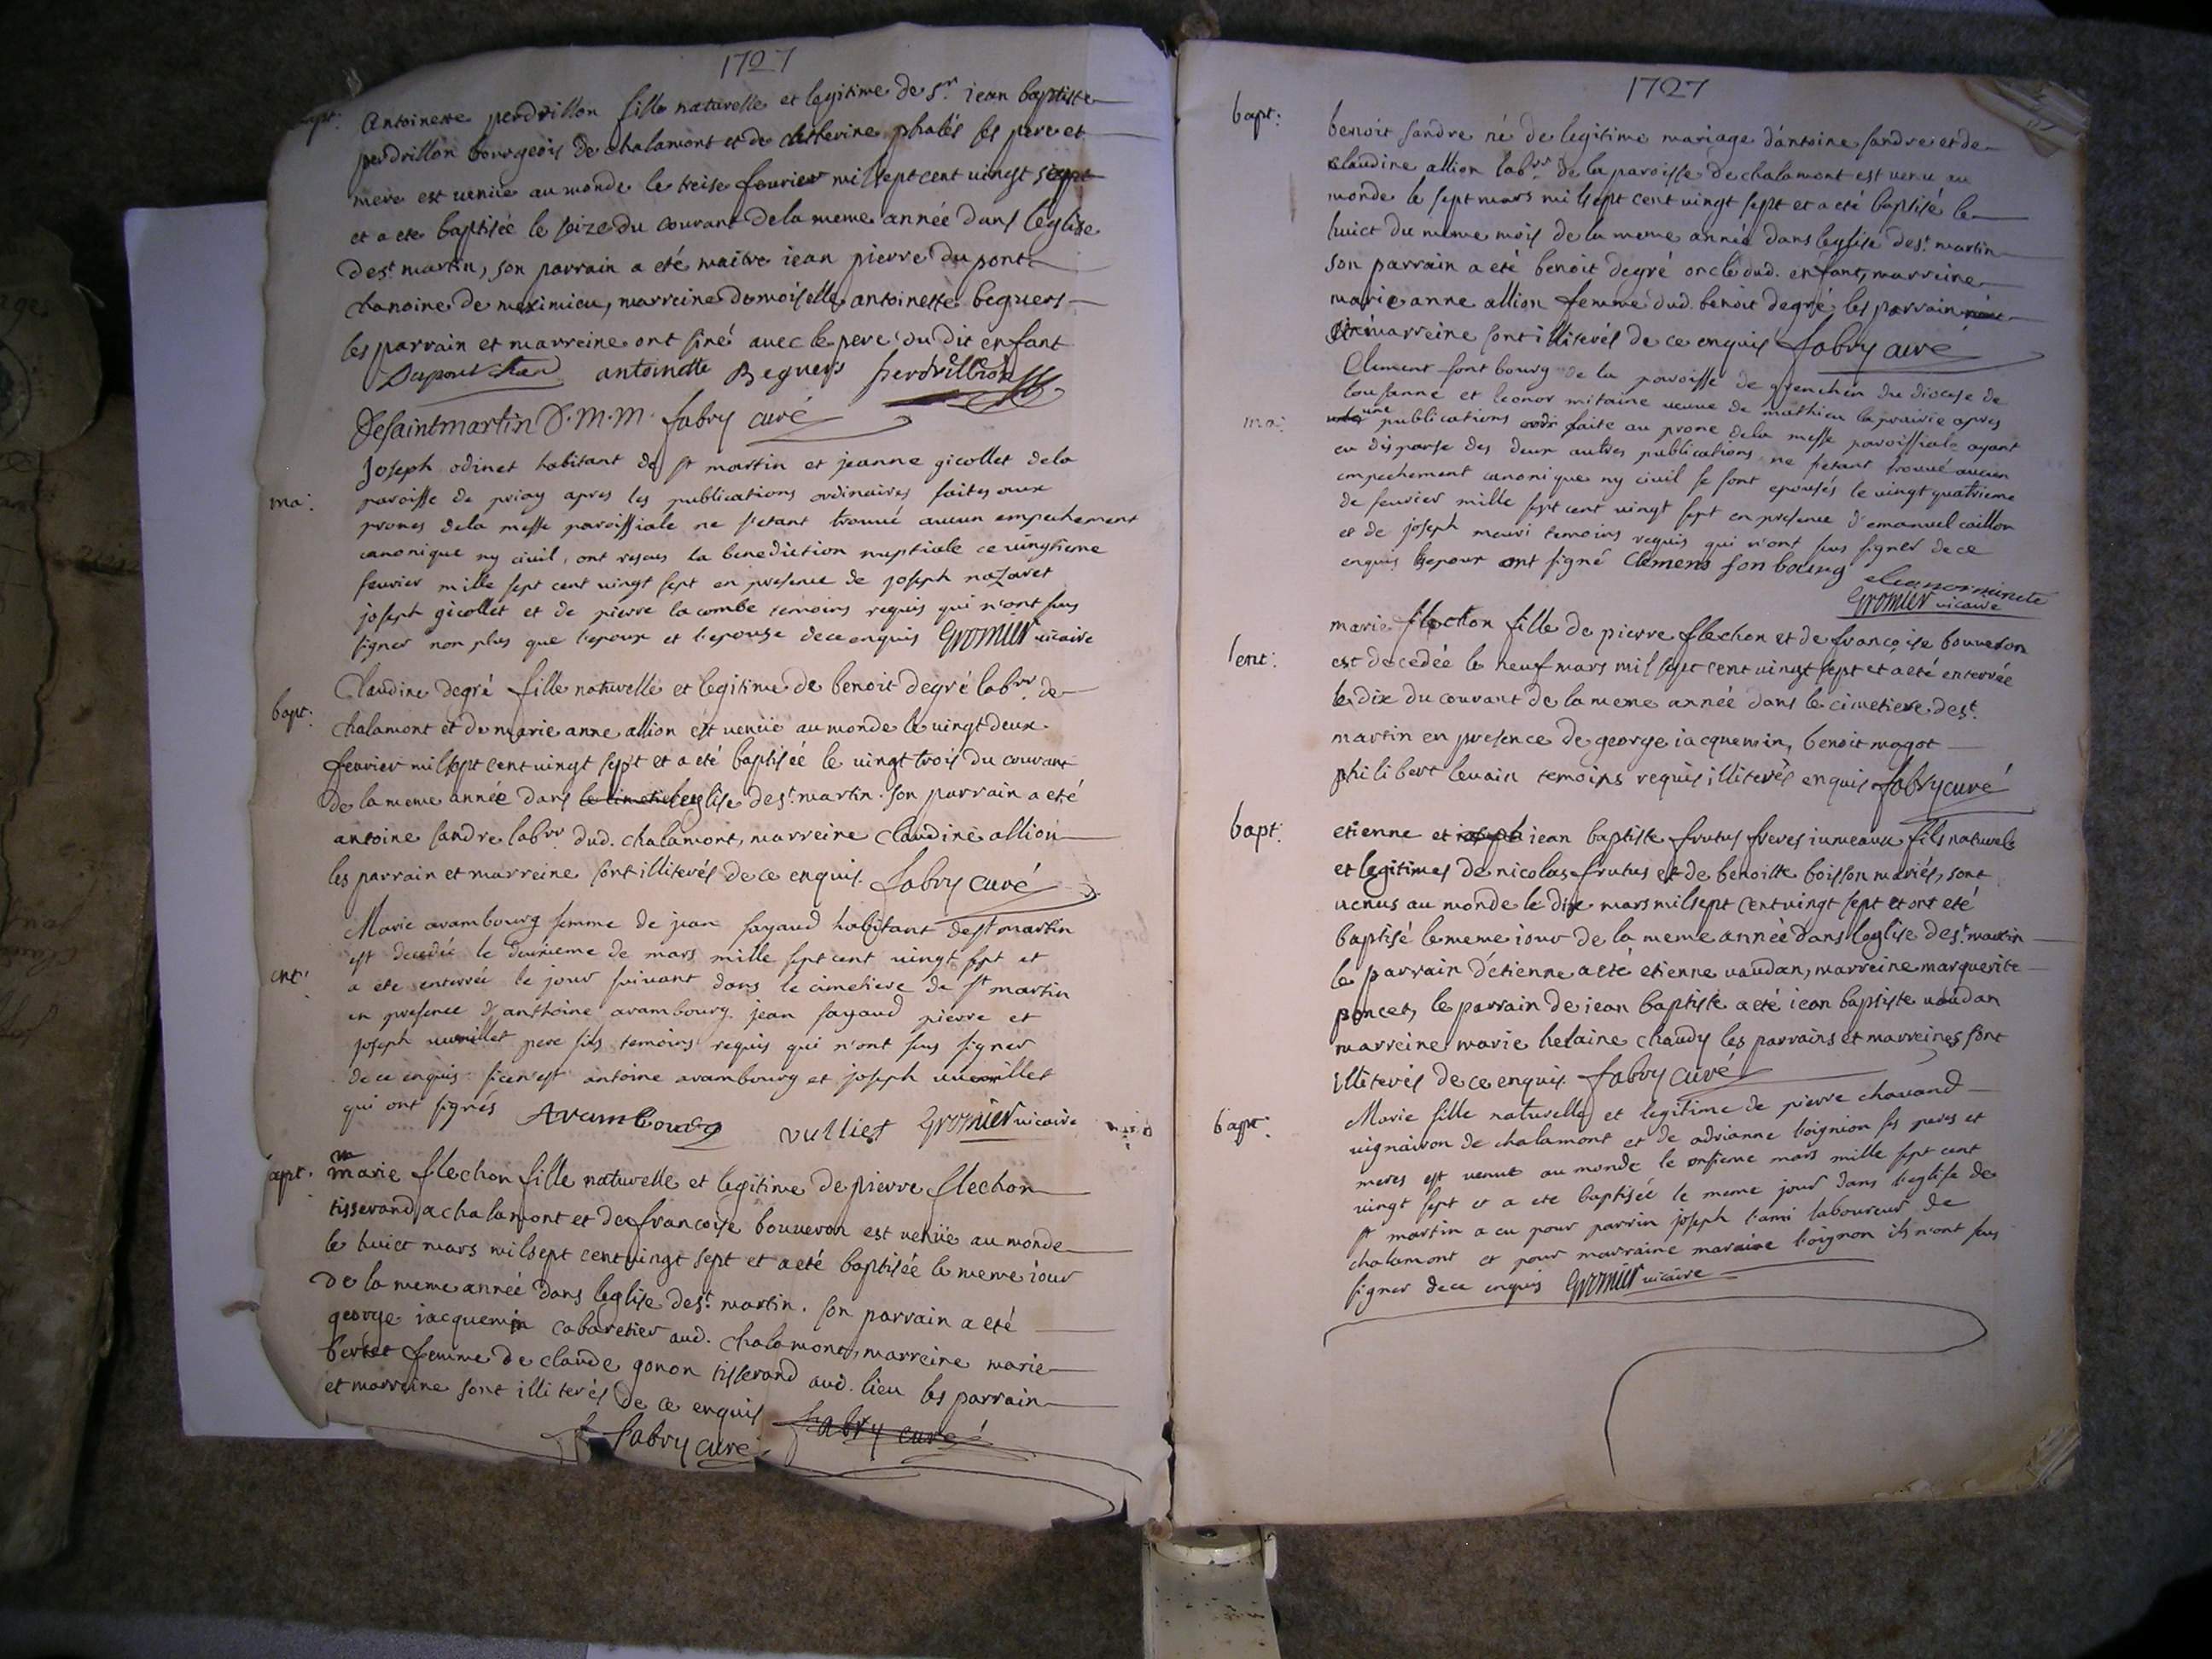 1727
bapt: Antoinette perdrillon fille naturelle et legitime de Sr. iean baptiste
perdrillon bourgeois de chalamont et de catherine phalés ses pere et
mere est venüe au monde le treise fevrier mil sept cent vingt sept
et a ete baptisée le seize du couvant de la meme année dans l'eglise
de st martin, son parrain a eté maitre iean pierre dupont
chanoine de meximieu, marreine demoiselle antoinette beguers
les parrain et marreine ont siné avec le pere du dit enfant
Dupont antoinette Beguers Perdrillion
Desaintmartin D.M.M. fabry curé
ma: Joseph odinet habitant de st martin et jeanne gicollet dela
paroisse de priay apres les publications ordinaires faites aux
prones dela messe paroissiale ne s'etant trouvé aucun empechement
canonique ny civil, ont reçues la benediction nuptiale ce vingtieme
fevrier mille sept cent vingt sept en presence de joseph nazaret
joseph gicollet et de pierre lacombe temoins requis qui n'ont sus
signer non plus que l'epoux et l'epouse dece enquis Gromier vicaire
bapt: Claudine degré fille naturelle et legitime de benoit degré labrr. de
chalamont et de marie anne allion est venüe au monde le vingt deux
fevrier mil sept cent vingt sept et a eté baptisée le vingt trois du couvant
de la meme année dans le cimetie l'eglise de st. martin. son parrain a eté
antoine sandre labrr. dud. chalamont, marreine Claudine allion
les parrain et marreine sont illiterés de ce enquis. fabry curé
ent: Marie arambourg femme de jean fayaud habitant de st martin
est decedée le deuxieme de mars mille sept cent vingt sept et
a ete enterrée le jour suivant dans le cimetiere de st martin
en presence d'anthoine arambourg jean fayaud pierre et
joseph vuillet pere fils temoins requis qui n'ont sus signer
de ce enquis si cen'est antoine arambourg et joseph vuillet
qui ont signés Arambourg vulliet Gromier vicaire
bapt. marie flechon fille naturelle et legitime de pierre flechon
tisserand a chalamont et de francoise bouveron est venüe au monde
le huict mars mil sept cent vingt sept et a eté baptisée le meme iour
de la meme année dans l'eglise de st. martin. son parrain a eté
george iacquemin cabaretier aud. chalamont, marreine marie
bertet femme de claude gonon tisserand aud. lieu les parrain
et marreine sont illiterés de ce enquis fabry curé
fabry curé
1727
bapt: benoit sandre né de legitime mariage d'antoine sandre et de
claudine allion labrr. de la paroisse de chalamont est venu au
monde le sept mars mil sept cent vingt sept et a eté baptisé le
huict du meme mois de la meme année dans l'eglise de st. martin
son parrain a eté benoit degré oncle dud. enfant, marreine
marie anne allion femme dud. benoit degré les parrain
et marreine sont illiterés de ce enquis fabry curé
Climent font bourg de la paroisse de grenchen du diocese de
lousanne et leonor mitaine veuve de mathieu laprairie apres
ma: une publications faite au prone dela messe paroissiale ayant
eu dispanse des deux autres publications ne s'etant trouvé aucun
empechement canonique ny civil se sont epousés le vingt quatrieme
de fevrier mille sept cent vingt sept en presence d'emanuel caillon
et de joseph meuri temoins requis qui n'ont sus signer de ce
enquis l'epoux ont signé Clemens fonbourg eleanor
Gromier vicaire
ent: marie flechon fille de pierre flechon et de françoise bouveron
est decedée le neuf mars mil sept cent vingt sept et a eté enterrée
le dix du couvant de la meme année dans le cimetiere de st.
martin en presence de george iacquemin, benoit magot
philibert levain temoins requis illiterés enquis fabry curé
bapt: etienne et ioseph iean baptiste frutus freres iumeaux fils naturels
et legitimes de nicolas frutus et de benoitte boisson mariés, sont
venus au monde le dix mars mil sept cent vingt sept et ont eté
baptisé le meme iour de la meme année dans l'eglise de st. martin
le parrain d'etienne a eté etienne vaudan, marreine marguerite
poncet, le parrain de iean baptiste a eté iean baptiste vaudan
marreine marie helaine chaudy les parrains et marreines sont
illiterés de ce enquis. fabry curé
bapt: Marie fille naturelle et legitime de pierre chavand
vigneron de chalamont et de adrianne l'oignion ses peres et
meres est venue au monde le onsieme mars mille sept cent
vingt sept et a ete baptisée le meme jour dans l'eglise de
st martin a eu pour parrin joseph l'ami laboureur de
chalamont et pour marraine l'oignon ils n'ont sus
signer dece enquis Gromier vicaire